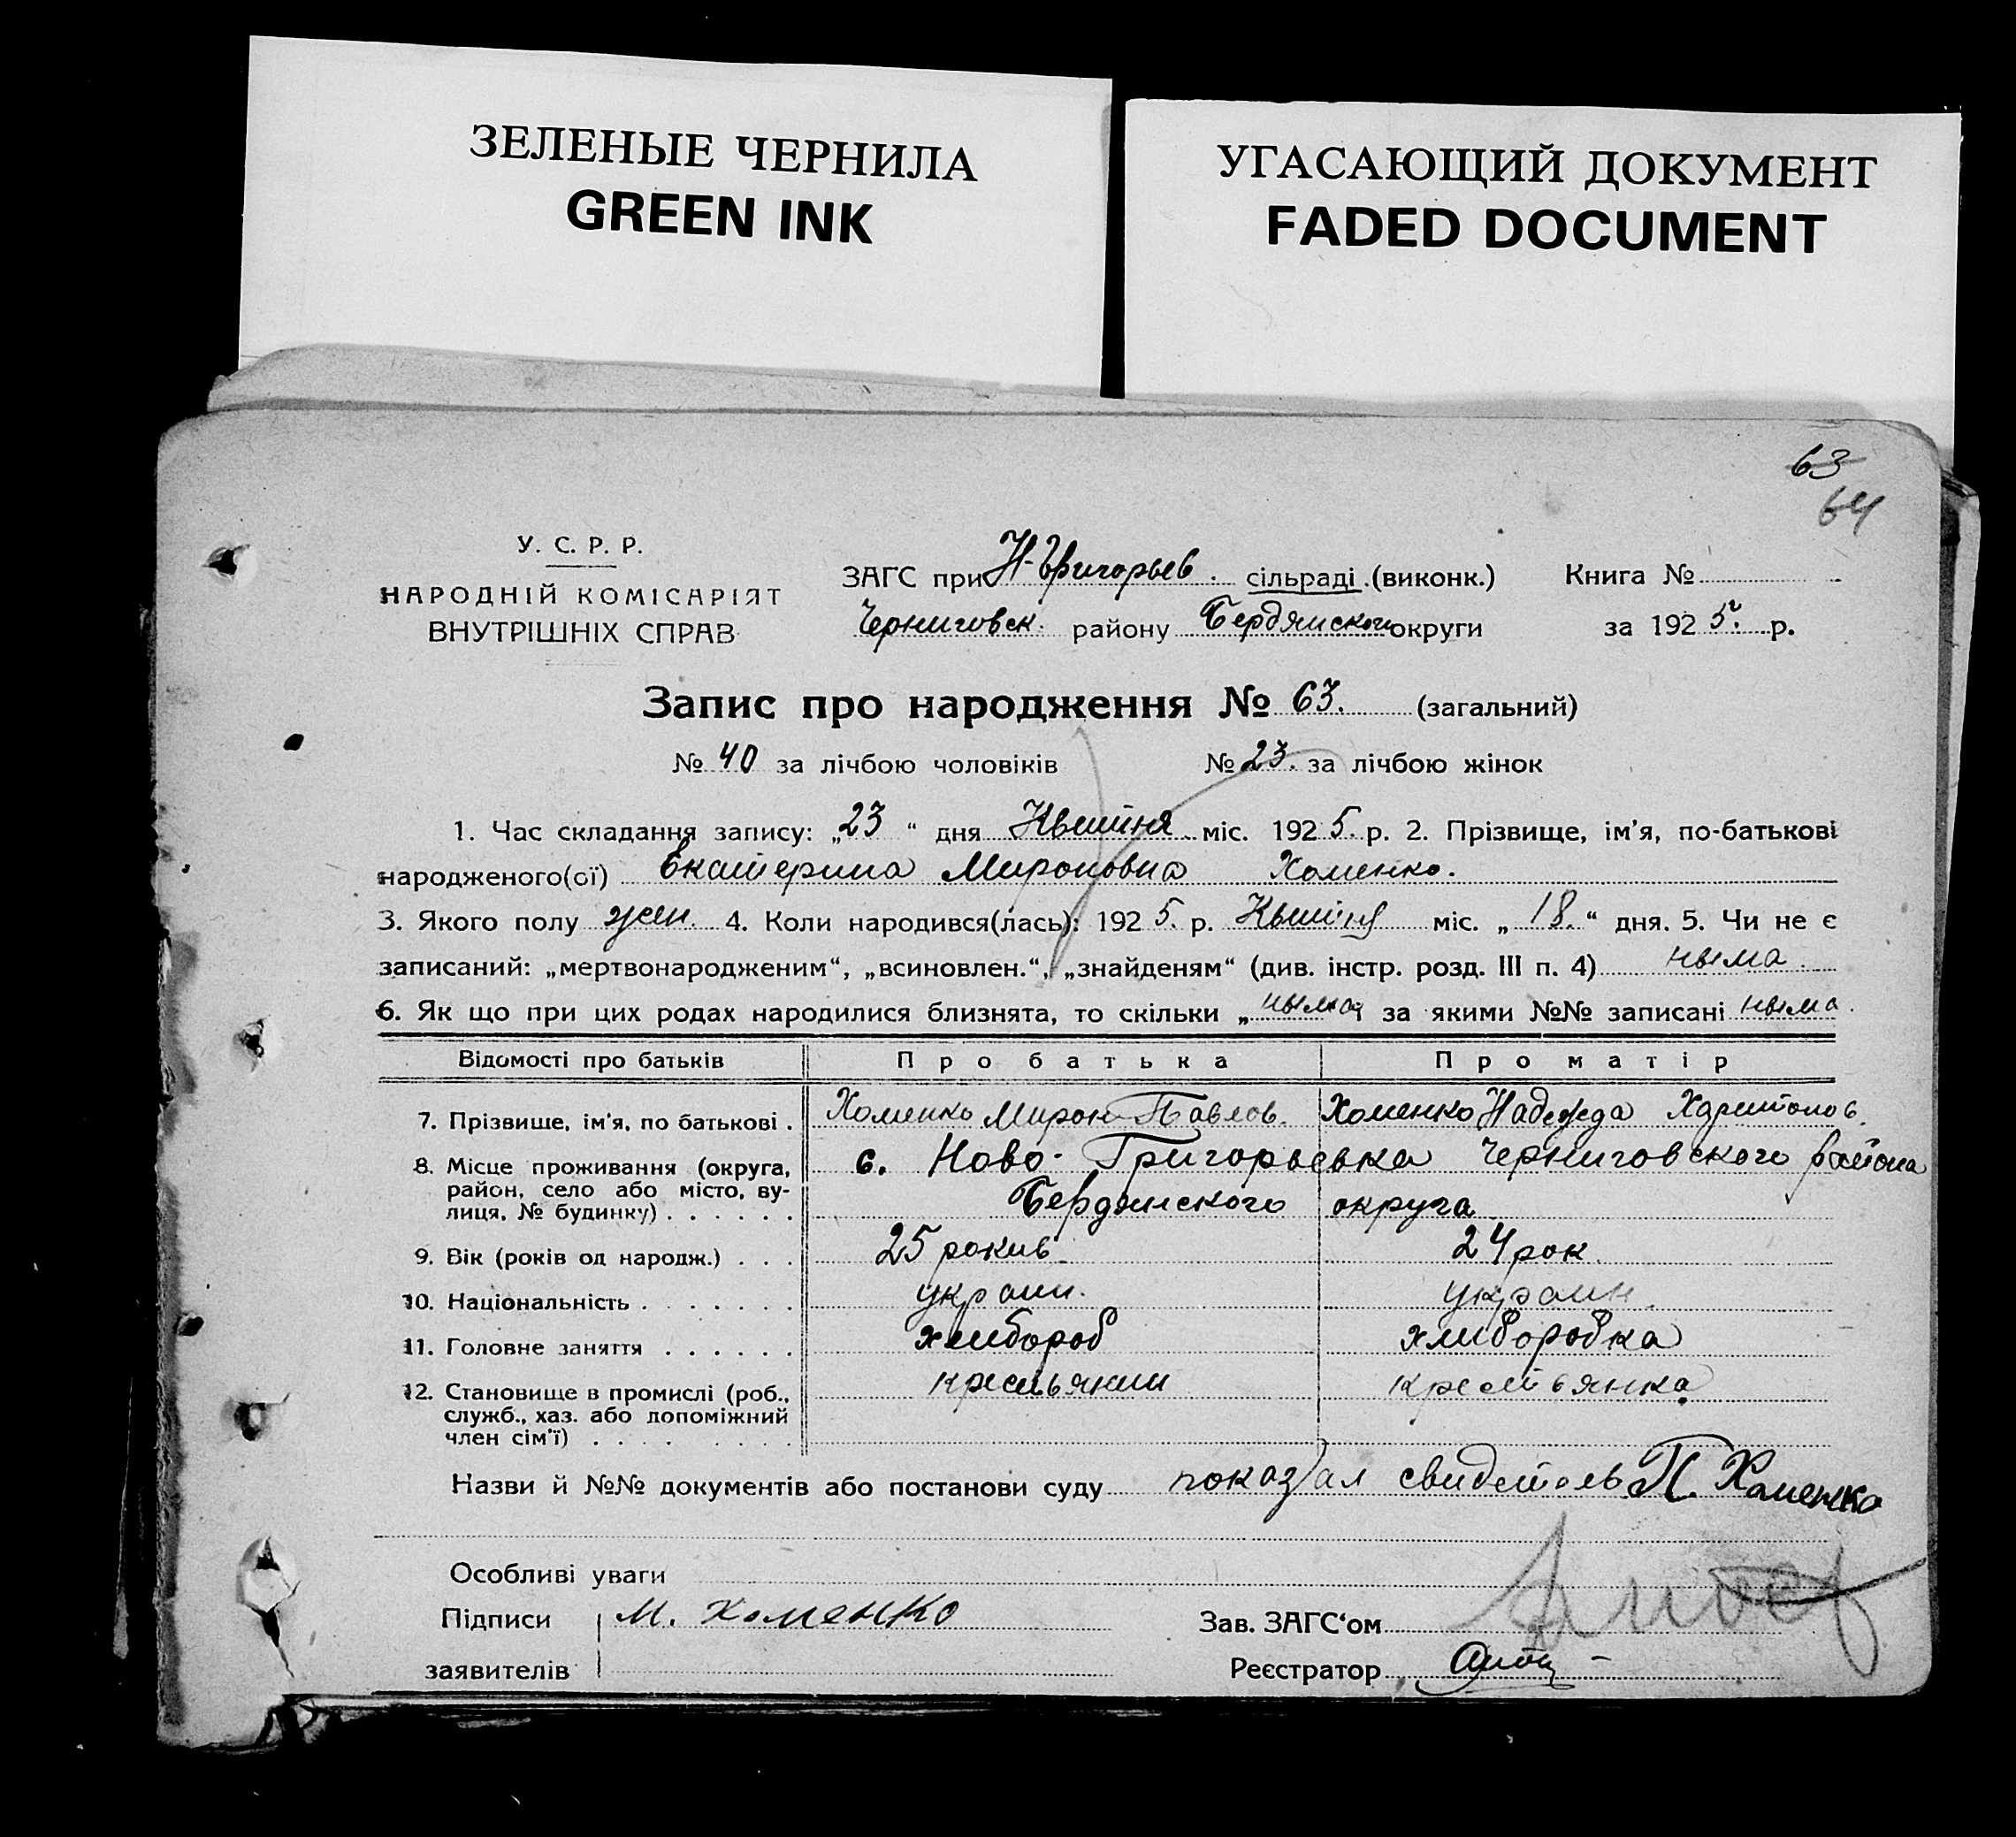 ЗЕЛЕНЫЕ ЧЕРНИЛА
GREEN INK
УГАСАЮЩИЙ ДОКУМЕНТ
FADED DOCUMENT
63
64
У. С. Р. Р.
НАРОДНІЙ КОМІСАРІЯТ
ВНУТРІШНІХ СПРАВ
ЗАГС при Н-Григорьев. сільраді (виконк.) Книга №
Черниговск. району Бердянского округи за 1925. р.
Запис про народження № 63. (загальний)
№ 40 за лічбою чоловіків № 23. за лічбою жінок
1. Час складання запису: „23“ дня Квитня міс. 1925. р. 2. Прізвище, ім'я, по-батькові
народженого(ої) Екатерина Мироновна Хоменко.
3. Якого полу жен. 4. Коли народився(лась): 1925. р. Квитня міс. „18.“ дня. 5. Чи не є
записаний: „мертвонародженим“, „всиновлен.“, „знайденям“ (див. інстр. розд. III п. 4) ныма.
6. Як що при цих родах народилися близнята, то скільки „ныма за якими №№ записані ныма.
Відомості про батьків Про батька Про матір
7. Прізвише, ім'я, по батькові . Хоменко Мирон Павлов. Хоменко Надежда Харитонов.
8. Місце проживання (округа, с. Ново-Григорьевка Черниговского района
район, село або місто, ву-
лиця, № будинку) . . . . . . Бердянского округа
9. Вік (років од народж.) . . . 25 рокив. 24 рок.
10. Національність . . . . . . . украин. украин.
11. Головне заняття . . . . . . хлибороб хлиборобка
12. Становище в промислі (роб., крестьянин крестьянка
служб., хаз. або допоміжний
член сім'ї) . . . . . . . . .
Назви й №№ документів або постанови суду показал свидетель П. Хоменко
Особливі уваги
Підписи М. Хоменко Зав. ЗАГС‘ом
заявителів Реєстратор